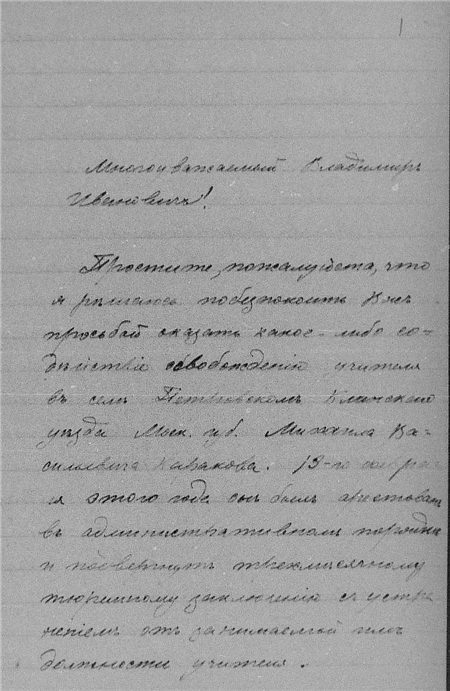 1
Многоуважаемый Владимиръ
Ивановичъ!
Простите, пожалуйста, что
я рѣшаюсь побезпокоить Васъ
просьбой оказать какое-либо со-
дѣйствіе освобожденію учителя
въ селѣ Петровскомъ Клинскаго
уѣзда Моск. губ. Михаила Ва-
сильевича 13-го
этого года онъ былъ арестованъ
въ административномъ порядкѣ
и подвергнутъ трехмѣсячному
тюремному заключенію съ устра-
неніемъ отъ занимаемой имъ
должности учителя.